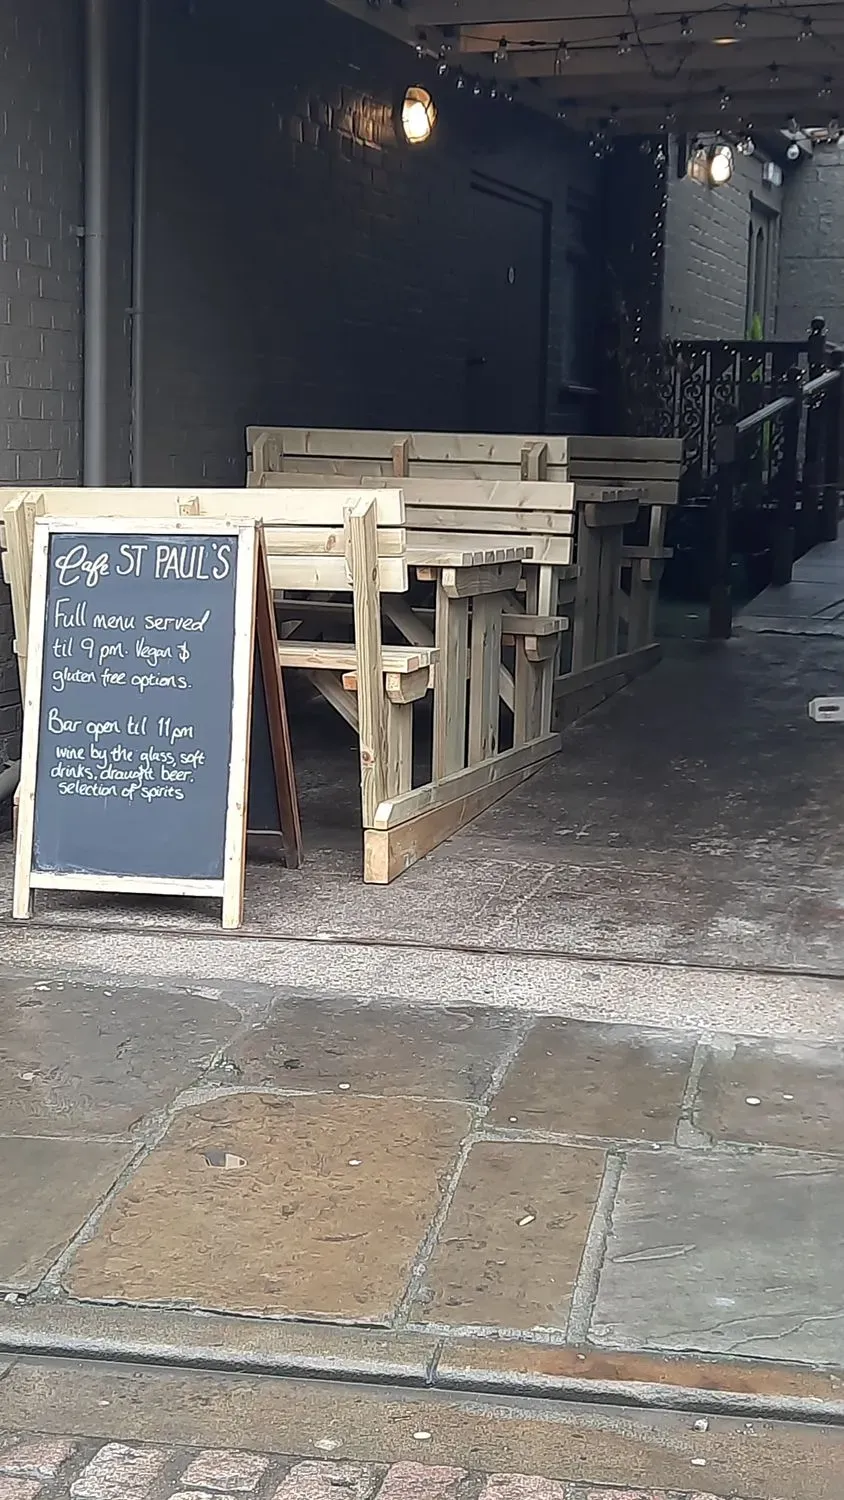 Cafe ST PAUL'S
Full menu served
til 9 pm. Vegan &
gluten free options.
Bar open til 11pm
wine by the glass, soft
drinks, draught beer,
selection of spirits